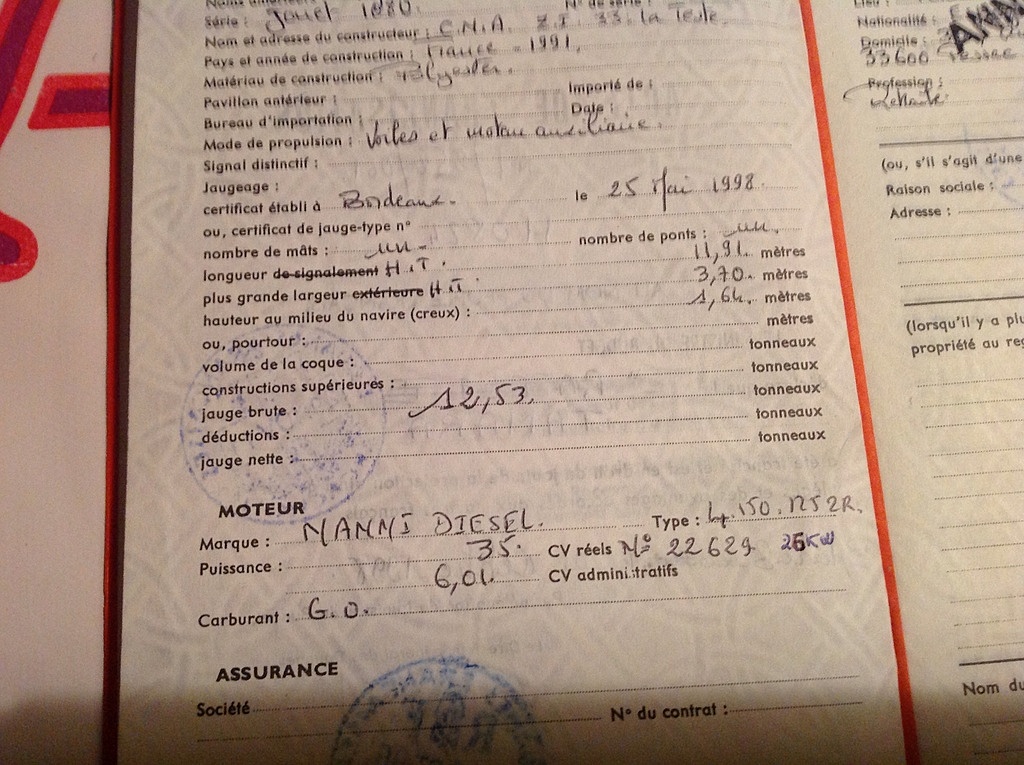 Série : Jouet 1080. N° de série :
Nom et adresse du constructeur : C.N.A. Z.I. 33. la Teste
Pays et année de construction : France - 1991.
Matériau de construction : Polyester.
Pavillon antérieur : Importé de :
Bureau d'importation : Date :
Mode de propulsion : Voiles et moteur auxiliaire.
Signal distinctif :
Jaugeage :
certificat établi à Bordeaux. le 25 Mai 1998.
ou, certificat de jauge-type n°
nombre de mâts : un - nombre de ponts : un
longueur de signalement H.T. 11,91. mètres
plus grande largeur extérieure H.T. 3,70. mètres
hauteur au milieu du navire (creux) : 1,64. mètres
ou, pourtour : mètres
volume de la coque : tonneaux
constructions supérieures : tonneaux
jauge brute : 12,53. tonneaux
déductions : tonneaux
jauge nette : tonneaux
MOTEUR
Marque : NANNI DIESEL. Type : 4.150.
Puissance : 35. CV réels N° 22629 KW
6,01. CV administratifs
Carburant : G.O.
ASSURANCE
Société N° du contrat :
Nationalité :
Domicile :
33600
Profession :
(ou, s'il s'agit d'une
Raison sociale :
Adresse :
(lorsqu'il y a
propriété au
Nom du